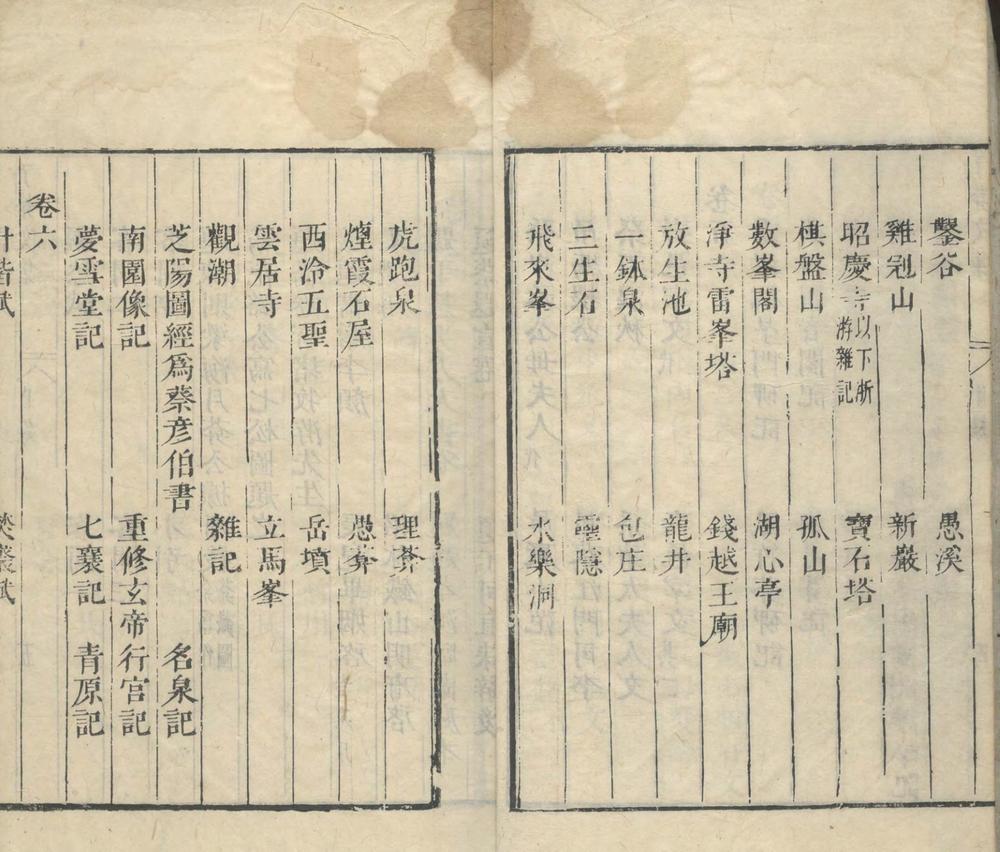 鑿谷 愚溪
雞冠山 新巖
昭慶寺以下浙游雜記 寶石塔
棋盤山 孤山
數峯閣 湖心亭
淨寺雷峯塔 錢越王廟
放生池 龍井
一鉢泉 包庄
三生石 靈隱
飛來峯 水樂洞
虎跑泉 理菴
煙霞石屋 愚菴
西泠五聖 岳墳
雲居寺 立馬峯
觀潮 雜記
芝陽圖經為蔡彥伯書 名泉記
南園像記 重修玄帝行宮記
夢雪堂記 七襄記 青原記
卷六